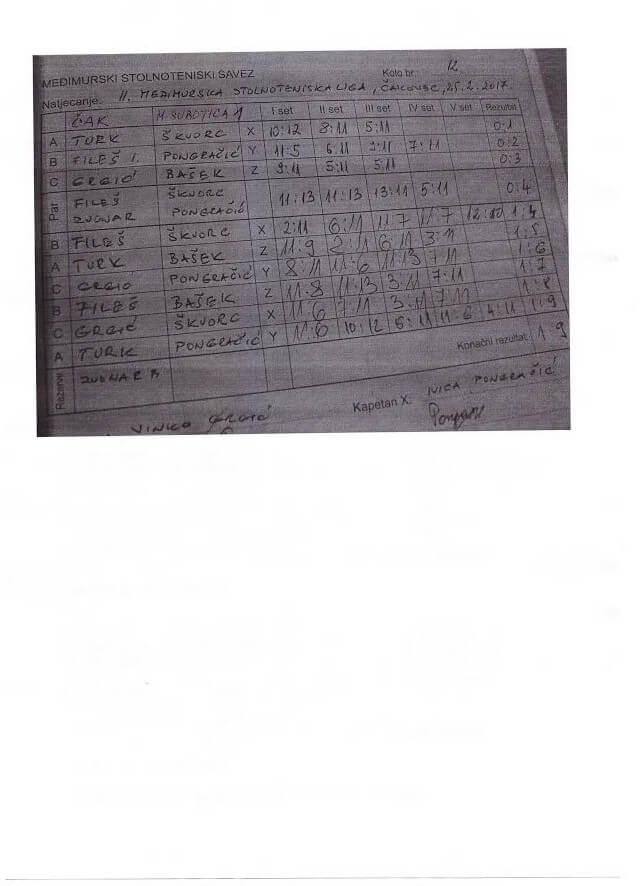 MEĐIMURSKI STOLNOTENISKI SAVEZ Kolo br. 12
Natjecanje: II. MEĐIMURSKA STOLNOTENISKA LIGA, ČAKOVEC, 25.2.2017.
ČAK M. SUBOTICA 1 I set II set III set IV set V set Rezultat
A TURK ŠKVORC X 10:12 8:11 5:11 0:1
B FILEŠ I. PONGRAČIĆ Y 11:5 6:11 9:11 7:11 0:2
C GRGIĆ BAŠEK Z 9:11 5:11 5:11 0:3
Par FILEŠ ŠKVORC
ZVONAR PONGRAČIĆ 11:13 11:13 13:11 5:11 0:4
B FILEŠ ŠKVORC X 2:11 6:11 11:7 11:7 12:10 1:4
A TURK BAŠEK Z 11:9 2:11 6:11 3:11 1:5
C GRGIĆ PONGRAČIĆ Y 8:11 11:6 11:13 7:11 1:6
B FILEŠ BAŠEK Z 11:8 11:13 3:11 7:11 1:7
C GRGIĆ ŠKVORC X 11:6 7:11 3:11 7:11 1:8
A TURK PONGRAČIĆ Y 11:6 10:12 5:11 11:6 4:11 1:9
Rezerva: ZVONAR B Konačni rezultat: 1 9
VINKO GRGIĆ Kapetan X: IVICA PONGRAČIĆ